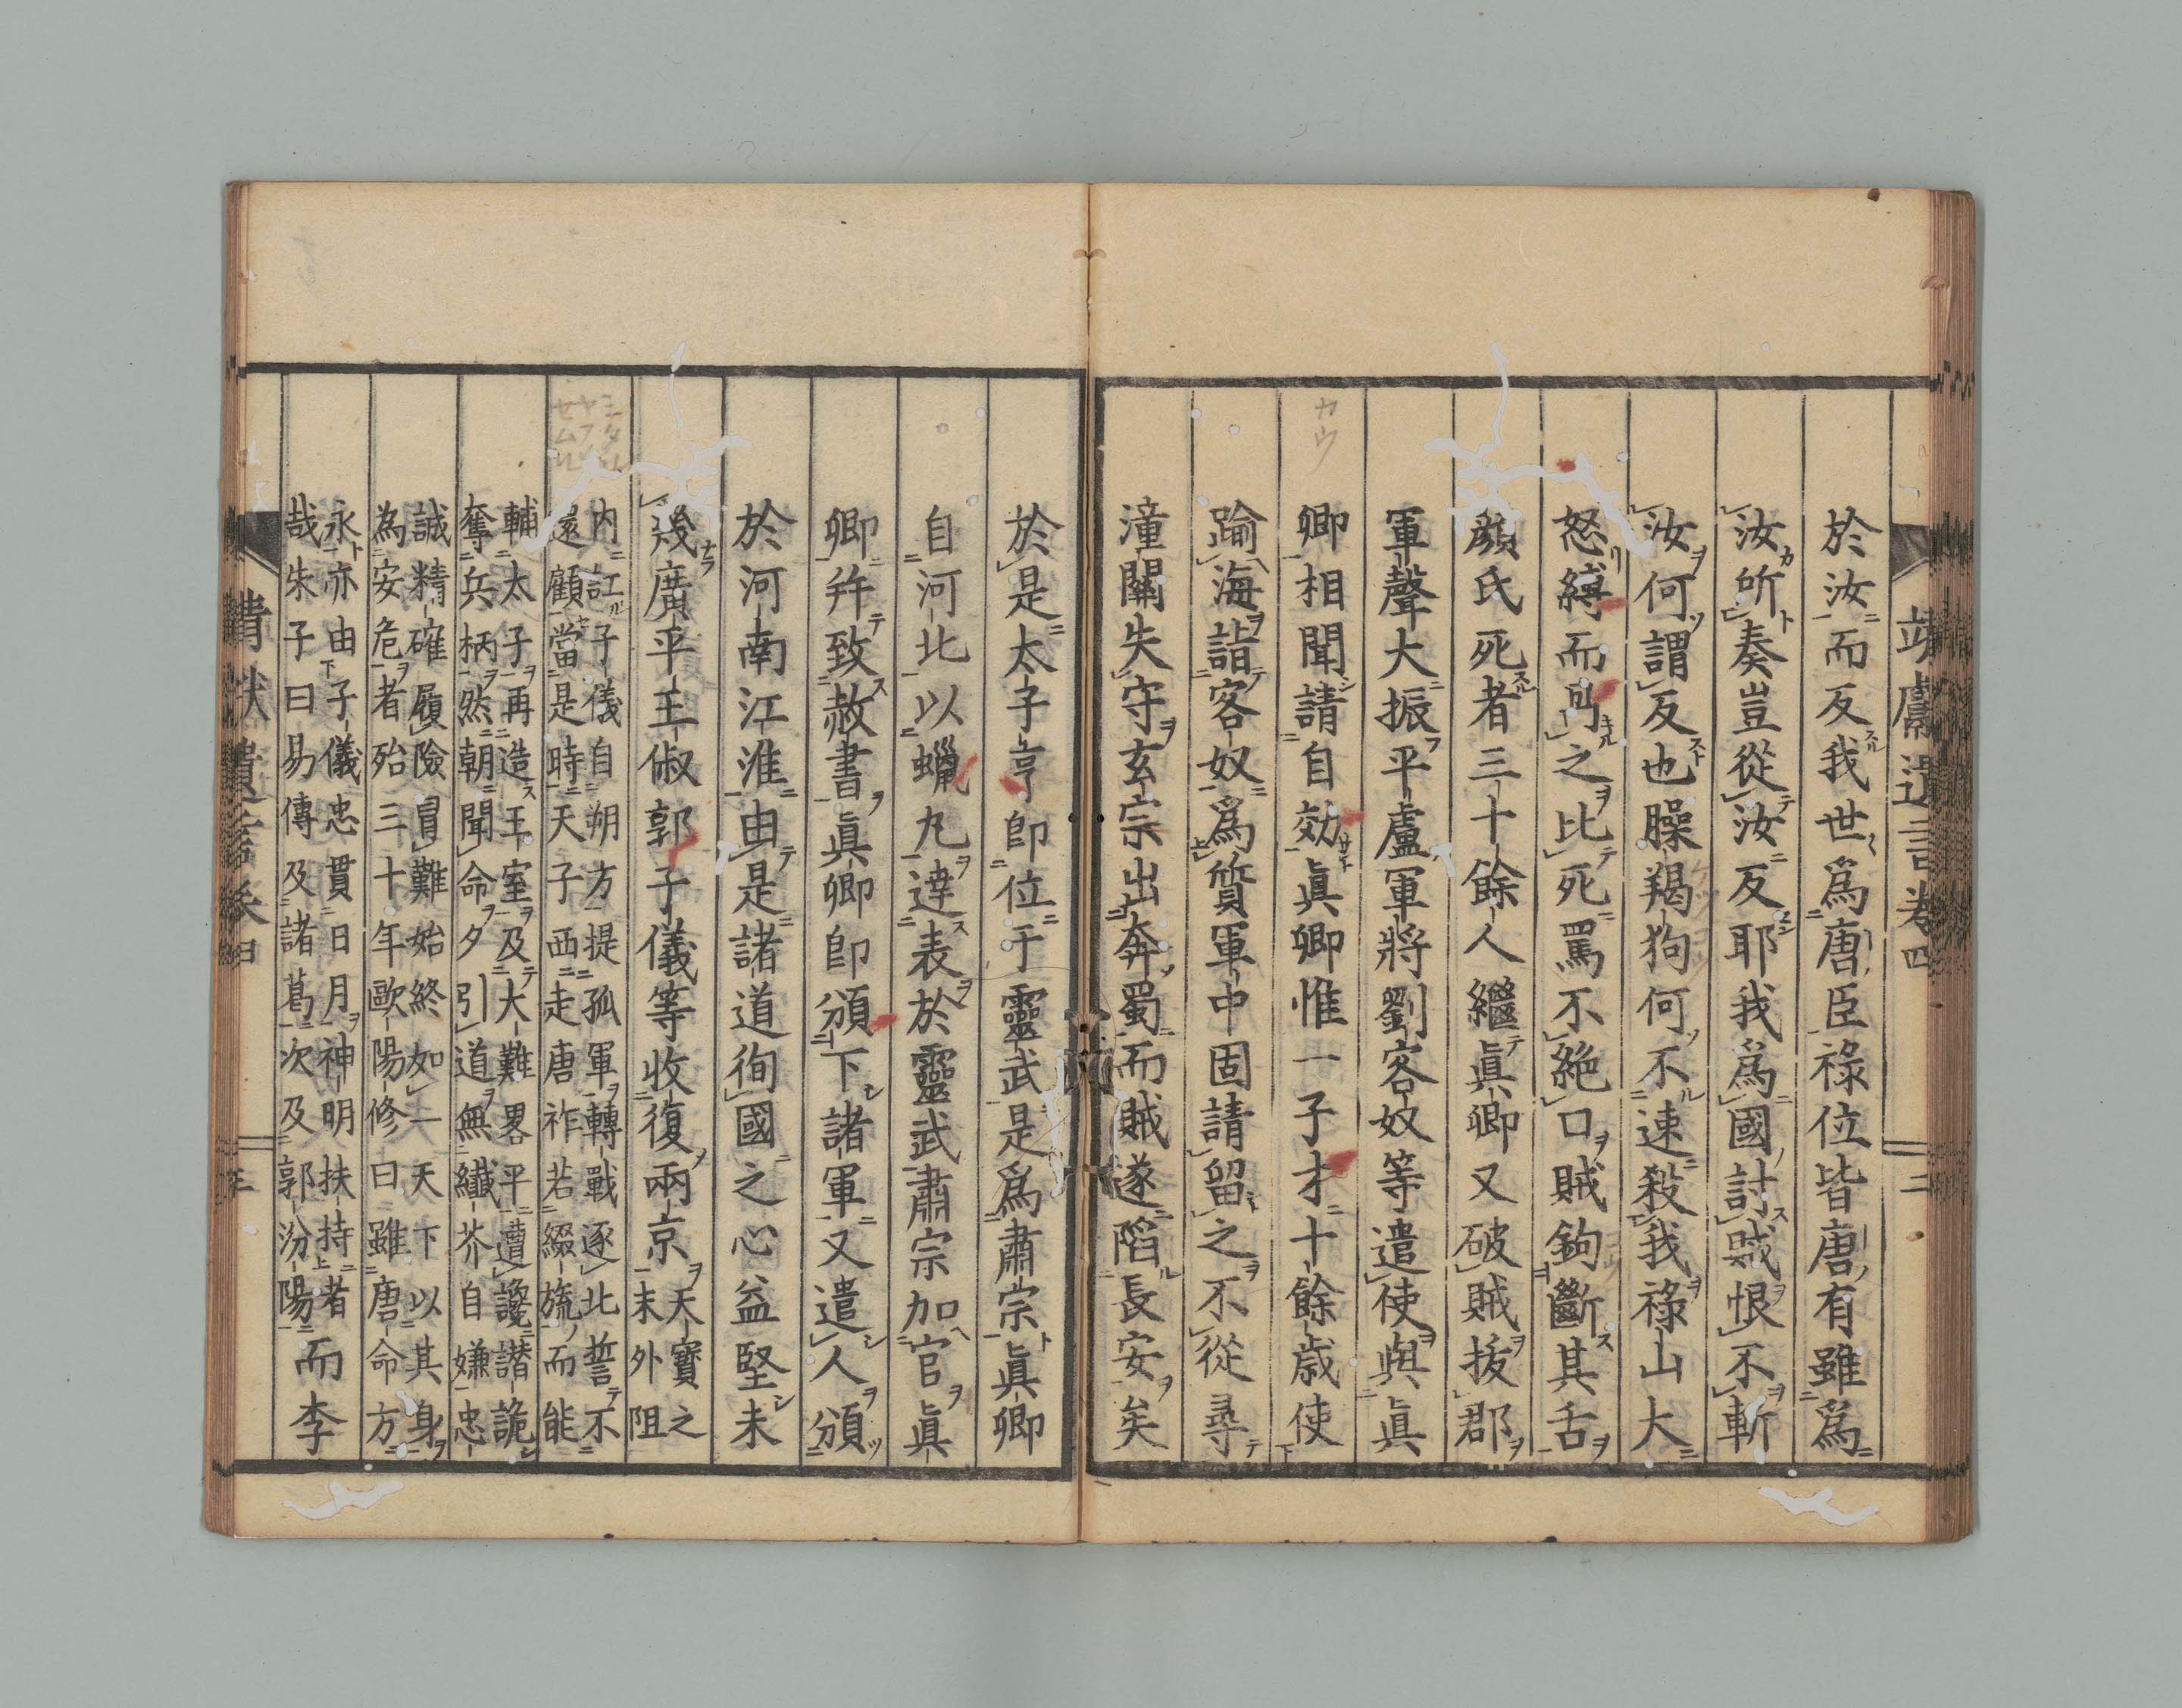 靖獻遺言卷四 二
於汝而反我世爲唐臣祿位皆唐有雖爲
汝所奏豈從汝反耶我爲國討賊恨不斬
汝何謂反也臊羯狗何不速殺我祿山大
怒縛而冎之比死罵不絶口賊鉤斷其舌
顏氏死者三十餘人繼眞卿又破賊拔郡
軍聲大振平盧軍將劉客奴等遣使與眞
卿相聞請自効眞卿惟一子才十餘歳使
踰海詣客奴爲質軍中固請留之不從尋
潼關失守玄宗出奔蜀而賊遂陷長安矣
於是太子亨卽位于靈武是爲肅宗眞卿
自河北以蠟丸達表於靈武肅宗加官眞
卿幷致赦書眞卿卽頒下諸軍又遣人頒
於河南江淮由是諸道徇國之心益堅未
幾廣平王俶郭子儀等收復兩京天寶之
末外阻
內訌子儀自朔方提孤軍轉戰逐北誓不
還顧當是時天子西走唐祚若綴旒而能
輔太子再造王室及大難畧平遭讒諎詭
奪兵柄然朝聞命夕引道無纖芥自嫌忠
誠精確履險冒難始終如一天下以其身
為安危者殆三十年歐陽修曰雖唐命方
永亦由子儀忠貫日月神明扶持者
哉朱子曰易傳及諸葛次及郭汾陽而李
靖獻遺言卷四